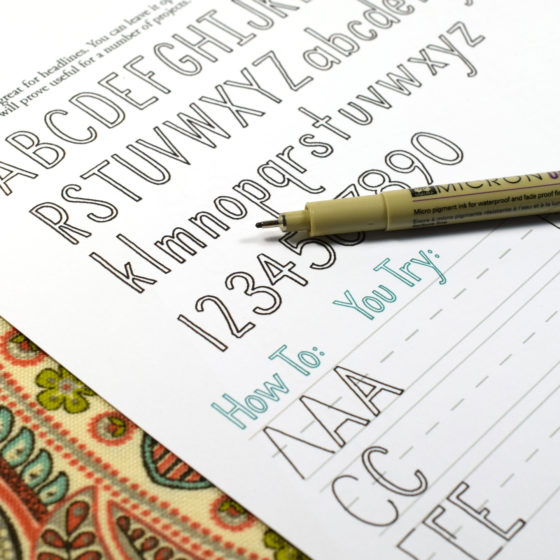 great for headlines. You can leave it
will prove useful for a number of projects.
ABCDEFGHIJK
RSTUVWXYZ abcdef
klmnopqrstuvwxyz
1234567890
MICRON
Micro pigment ink for waterproof and fade proof
How To: You Try:
AAA
CC
EEE